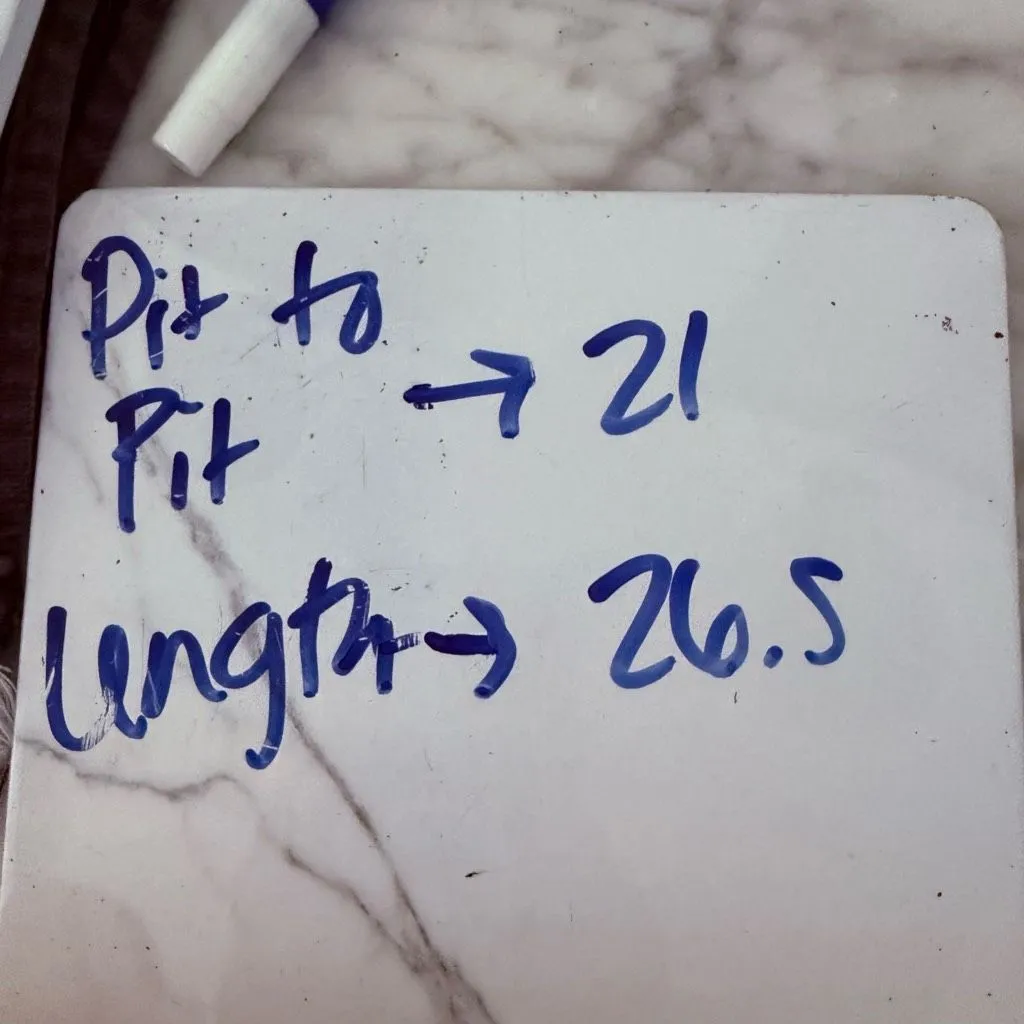 Pit to
Pit → 21
Length → 26.5